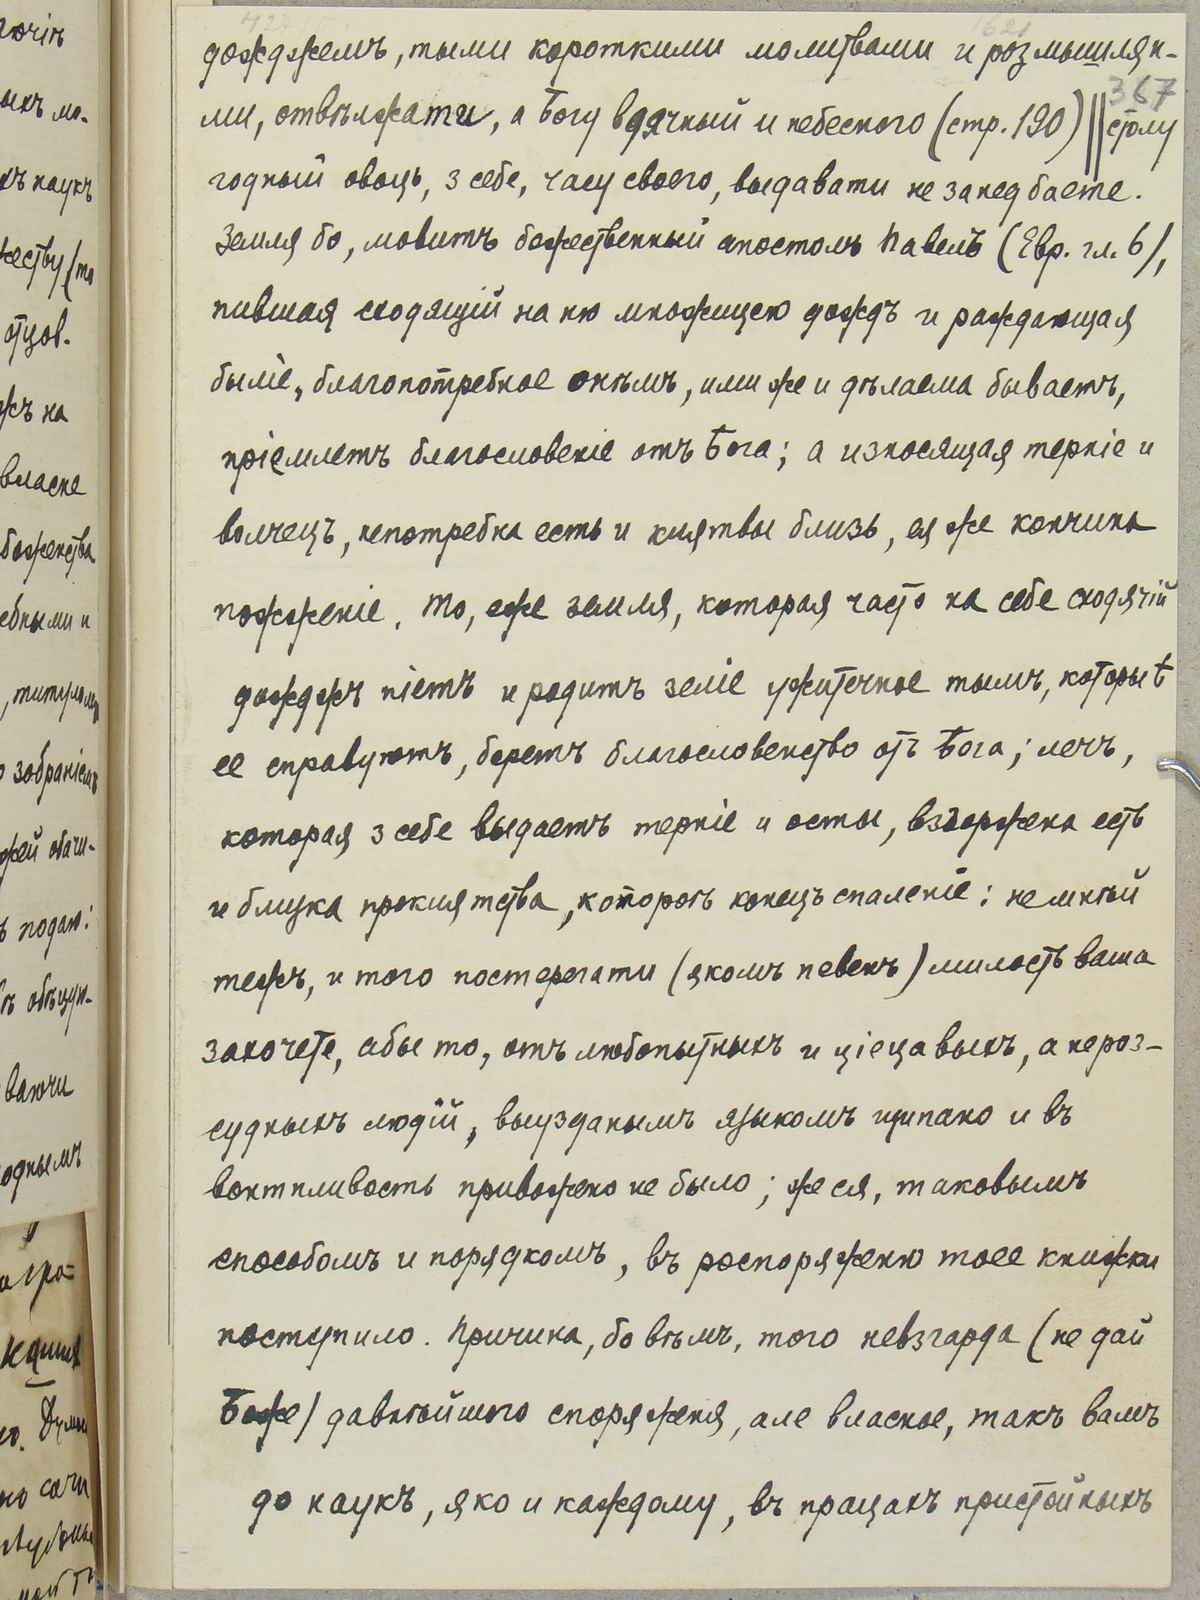 дожджемъ, тыми короткими молитвами и розмышляня-
ми, отвѣлжати, а Богу вдячный и небесного (стр. 190) || столу
367
годный овоцъ, з себе, часу своего, выдавати не занедбаете.
Земля бо, мовитъ божественный апостолъ Павелъ (Евр. гл. 6),
пившая сходящій на ню множицею дождъ и раждающая
быліе, благопотребное онѣмъ, ими же и дѣлаема бываетъ,
пріемлетъ благословеніе отъ Бога; а износящая терніе и
волчецъ, непотребна есть и клятвы близь, ея же кончина
пожженіе. То, еже земля, которая часто на себе сходячій
дожджъ піетъ и родитъ зеліе ужиточное тымъ, которыѣ
ее справуютъ, беретъ благословенство отъ Бога; лечъ,
которая з себе выдаетъ терніе и осты, взгоржена есть
и близка проклятства, которогъ конецъ спаленіе: немнѣй
тежъ, и того постерегати (якомъ певенъ) милость ваша
захочете, абы то, отъ любопытныхъ и ціецавыхъ, а нероз-
судныхъ людій, выузданымъ языкомъ щипано и въ
вонтпливость привожено не было; же ся, таковымъ
способомъ и порядкомъ, въ роспоряженю тоее книжки
поступило. Причина, бо вѣмъ, того невзгарда (не дай
Боже) давнѣйшого споряженя, але власное, такъ вамъ
до наукъ, яко и каждому, въ працахъ пристойныхъ